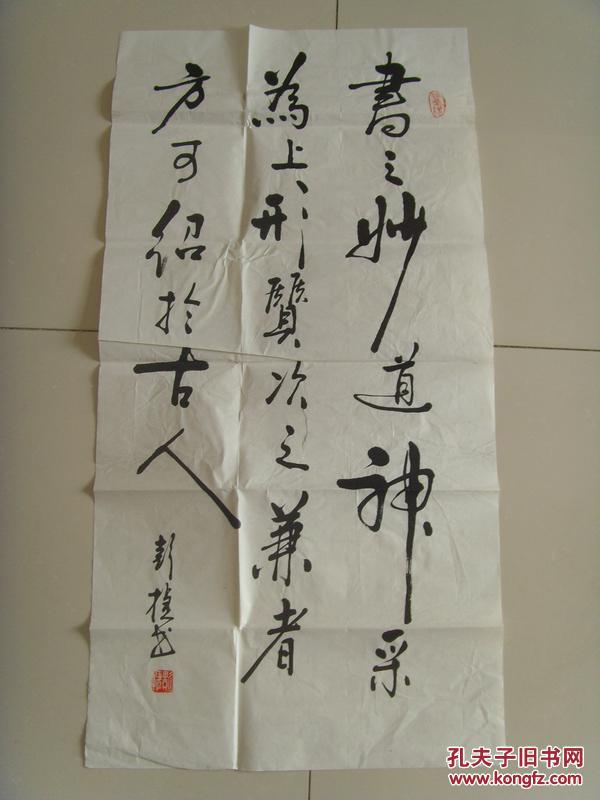 書之妙道神采
為上形質次之兼者
方可紹於古人
彭书
孔夫子旧书网
www.kongfz.com